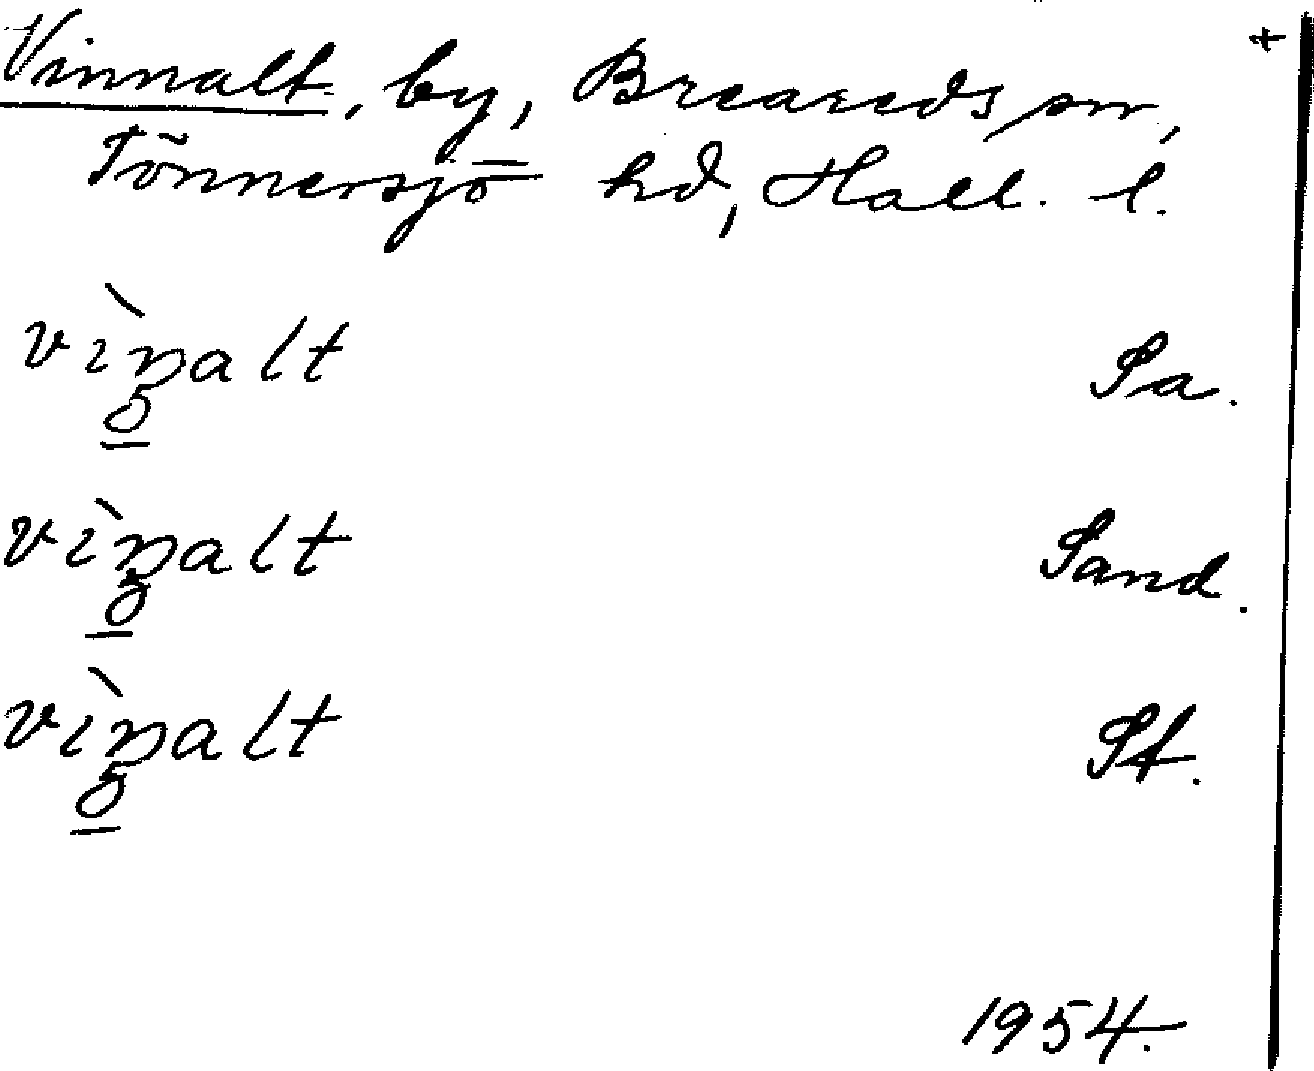 Vinnalt, by, Breareds sn, +
Tönnersjö hd, Hall. l.
vìnalt Sa.
vìnalt Sand.
vìnalt St.
1954.